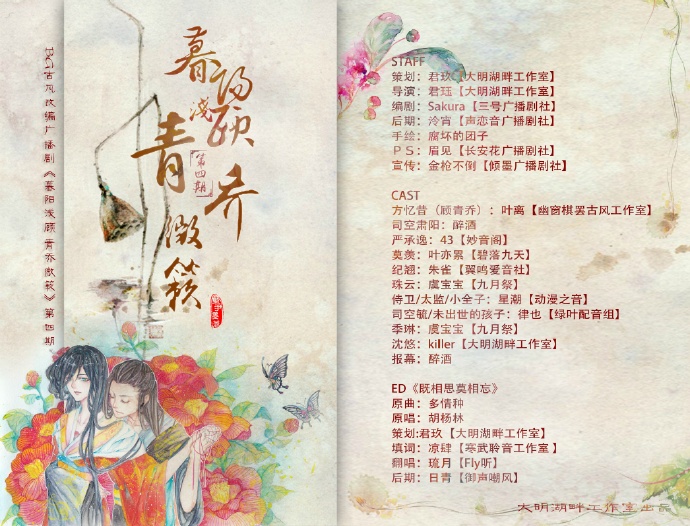 BG古风改编广播剧《暮阳浅顾 青乔微籁》第四期
暮阳
浅顾
青乔
第四期
微籁
STAFF
策划：君玖【大明湖畔工作室】
导演：君珏【大明湖畔工作室】
编剧：Sakura【三号广播剧社】
后期：泠宵【声恋音广播剧社】
手绘：腐坏的团子
PS：眉见【长安花广播剧社】
宣传：金枪不倒【倾墨广播剧社】
CAST
方忆昔（顾青乔）：叶离【幽窗棋罢古风工作室】
司空肃阳：醉酒
严承逸：43【妙音阁】
莫羡：叶亦累【碧落九天】
纪翘：朱雀【翼鸣爱音社】
珠云：虞宝宝【九月祭】
侍卫/太监/小全子：星潮【动漫之音】
司空毓/未出世的孩子：律也【绿叶配音组】
季琳：虞宝宝【九月祭】
沈悠：killer【大明湖畔工作室】
报幕：醉酒
ED《既相思莫相忘》
原曲：多情种
原唱：胡杨林
策划:君玖【大明湖畔工作室】
填词：凉肆【寒武聆音工作室】
翻唱：琉月【Fly听】
后期：日青【御声嘲风】
大明湖畔工作室出品